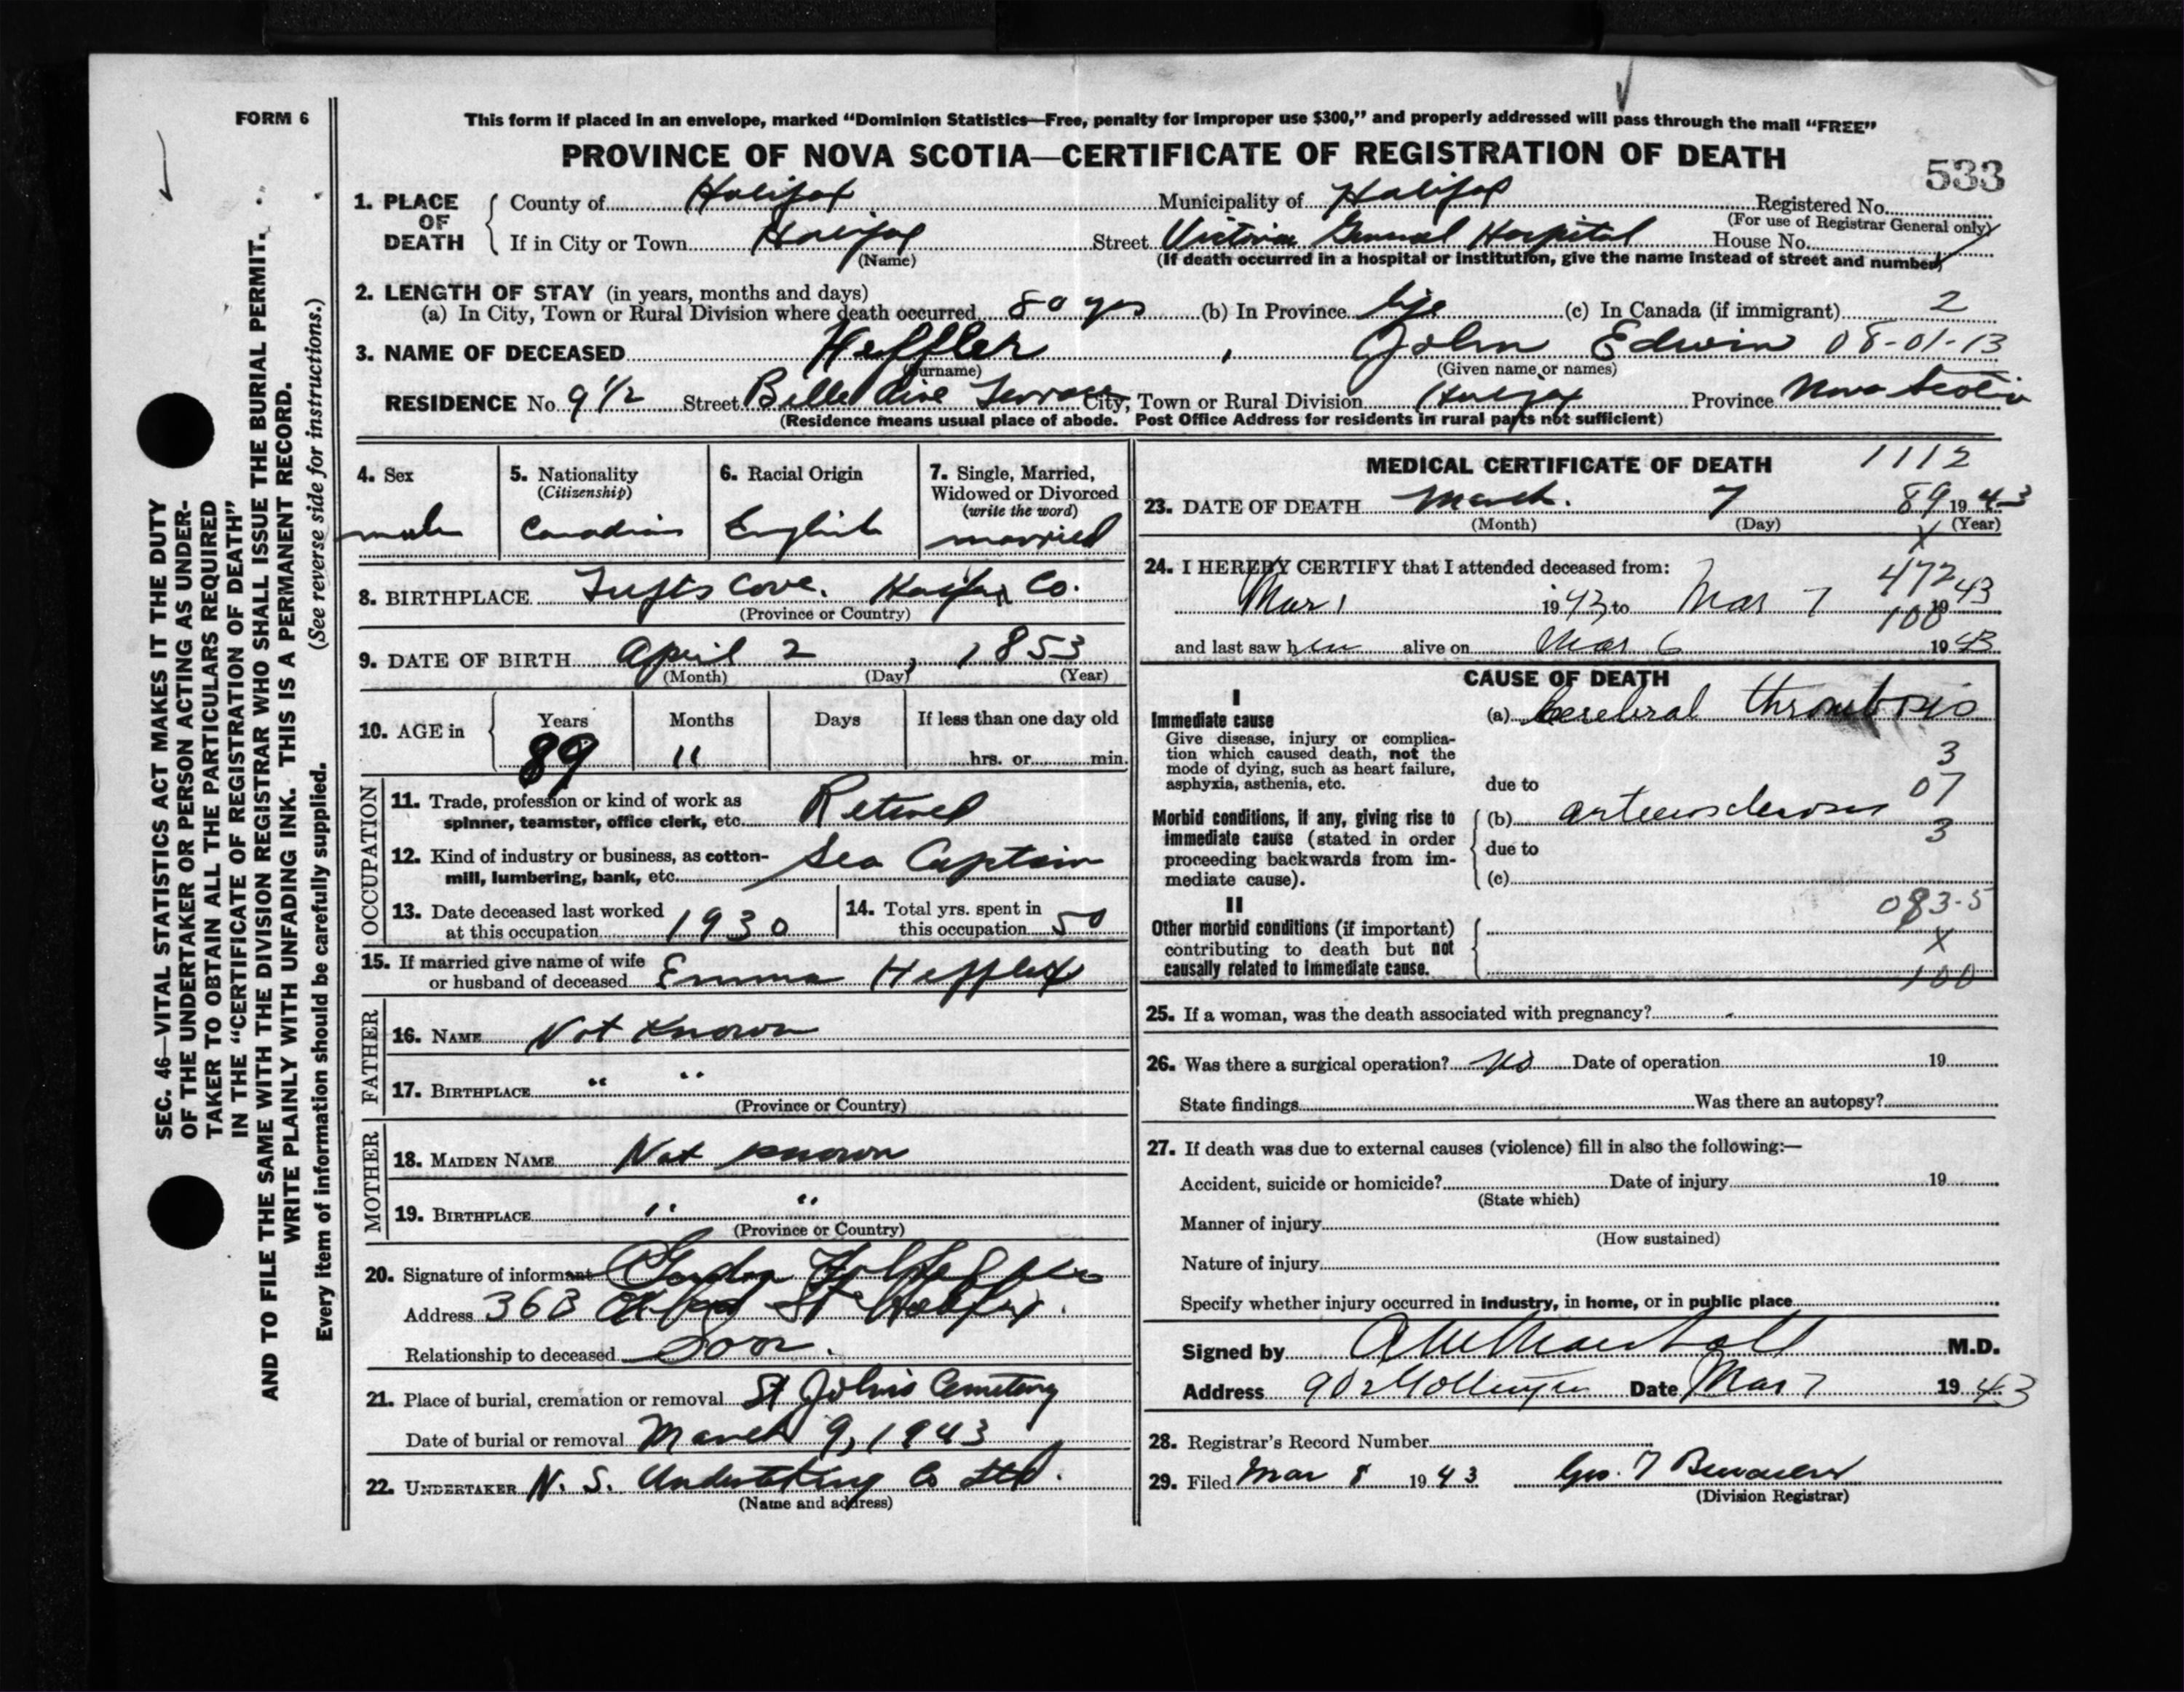 FORM 6
This form if placed in an envelope, marked “Dominion Statistics—Free, penalty for improper use $300,” and properly addressed will pass through the mail “FREE”
PROVINCE OF NOVA SCOTIA—CERTIFICATE OF REGISTRATION OF DEATH
533
1. PLACE OF DEATH
County of Halifax Municipality of Halifax Registered No.
(For use of Registrar General only)
If in City or Town Halifax Street Victoria General Hospital House No.
(Name) (If death occurred in a hospital or institution, give the name instead of street and number)
2. LENGTH OF STAY (in years, months and days)
(a) In City, Town or Rural Division where death occurred 80 yrs (b) In Province life (c) In Canada (if immigrant) 2
3. NAME OF DECEASED Heffler, John Edwin 08-01-13
(Surname) (Given name or names)
RESIDENCE No. 9 1/2 Street Belle Aire Terrace City, Town or Rural Division Halifax Province Nova Scotia
(Residence means usual place of abode. Post Office Address for residents in rural parts not sufficient)
4. Sex
male
5. Nationality
(Citizenship)
Canadian
6. Racial Origin
English
7. Single, Married,
Widowed or Divorced
(write the word)
married
8. BIRTHPLACE Tufts Cove, Halifax Co.
(Province or Country)
9. DATE OF BIRTH April 2, 1853
(Month) (Day) (Year)
10. AGE in Years Months Days If less than one day old
89 11 hrs. or min.
OCCUPATION
11. Trade, profession or kind of work as
spinner, teamster, office clerk, etc. Retired
12. Kind of industry or business, as cotton-
mill, lumbering, bank, etc. Sea Captain
13. Date deceased last worked
at this occupation 1930
14. Total yrs. spent in
this occupation 50
15. If married give name of wife
or husband of deceased Emma Heffler
FATHER
16. NAME Not Known
17. BIRTHPLACE " "
(Province or Country)
MOTHER
18. MAIDEN NAME Not known
19. BIRTHPLACE " "
(Province or Country)
20. Signature of informant Gordon
Address 363 St Halifax.
Relationship to deceased Son.
21. Place of burial, cremation or removal St John's Cemetery
Date of burial or removal March 9, 1943
22. UNDERTAKER N. S. Undertaking Co Ltd.
(Name and address)
MEDICAL CERTIFICATE OF DEATH 1112
23. DATE OF DEATH March 7 89 1943
(Month) (Day) (Year)
X
24. I HEREBY CERTIFY that I attended deceased from:
472
Mar 1 1943 to Mar 7 1943
100
and last saw him alive on Mar 6 1943
CAUSE OF DEATH
I
Immediate cause
Give disease, injury or complica-
tion which caused death, not the
mode of dying, such as heart failure,
asphyxia, asthenia, etc.
(a) Cerebral thrombosis
3
due to 07
Morbid conditions, if any, giving rise to
immediate cause (stated in order
proceeding backwards from im-
mediate cause).
(b) arteriosclerosis
3
due to
(c)
II
083-5
Other morbid conditions (if important)
contributing to death but not
causally related to immediate cause.
X
100
25. If a woman, was the death associated with pregnancy?
26. Was there a surgical operation? no Date of operation 19
State findings Was there an autopsy?
27. If death was due to external causes (violence) fill in also the following:—
Accident, suicide or homicide? Date of injury 19
(State which)
Manner of injury
(How sustained)
Nature of injury
Specify whether injury occurred in industry, in home, or in public place
Signed by Marshall M.D.
Address Date Mar 7 1943
28. Registrar's Record Number
29. Filed Mar 8 1943 Geo. 
(Division Registrar)
SEC. 46—VITAL STATISTICS ACT MAKES IT THE DUTY
OF THE UNDERTAKER OR PERSON ACTING AS UNDER-
TAKER TO OBTAIN ALL THE PARTICULARS REQUIRED
IN THE “CERTIFICATE OF REGISTRATION OF DEATH”
AND TO FILE THE SAME WITH THE DIVISION REGISTRAR WHO SHALL ISSUE THE BURIAL PERMIT.
WRITE PLAINLY WITH UNFADING INK. THIS IS A PERMANENT RECORD.
Every item of information should be carefully supplied. (See reverse side for instructions.)